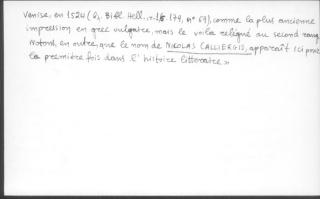 Venise, en 1524 (Cf. Bibl. Hell., 179, n° 69), comme la plus ancienne
impression en grec vulgaire, mais le voilà relégué au second rang.
Notons, en outre, que le nom de NICOLAS CALLIERGIS, apparaît ici pour
la première fois dans l'histoire littéraire »